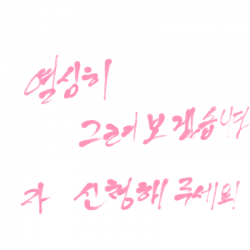 열심히
그려보겠습니다
신청해주세요!